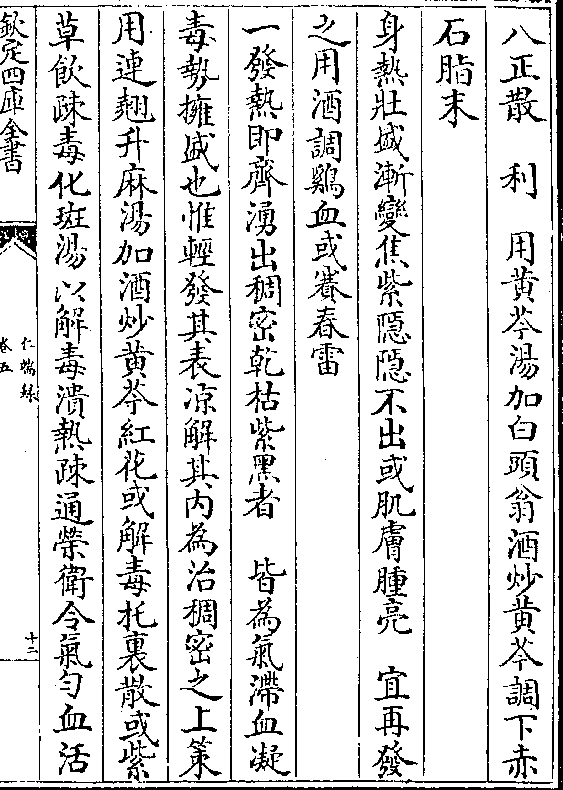 八正散　利　用黄芩湯加白頭翁酒炒黄芩調下赤
石脂末
身熱壯盛漸變焦紫隱隱不出或肌膚腫亮　宜再發
之用酒調鷄血或賽春雷
一發熱即齊湧出稠密乾枯紫黑者　皆為氣滯血凝
毒勢擁盛也惟輕發其表凉解其内為治稠密之上策
用連翹升麻湯加酒炒黄芩紅花或解毒托裏散或紫
草飲疎毒化斑湯以解毒潰熱疎通榮衛令氣勻血活
欽定四庫全書
仁端錄
卷五
十二